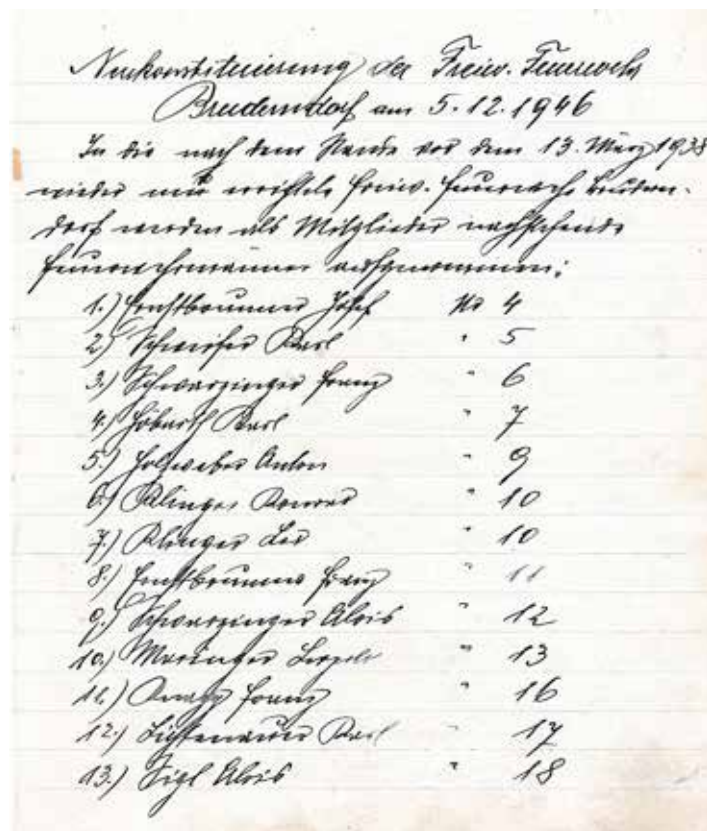 Neukonstituierung der Freiw. Feuerwehr
Bruderndorf am 5.12.1946
In die nach dem Stande vor dem 13. März 1938
wieder neu errichtete freiw. Feuerwehr Brudern-
dorf werden als Mitglieder nachstehende
Feuerwehrmänner aufgenommen:
1.) Ernstbrunner Josef No 4
2.) Karl " 5
3.) Schwarzinger Franz " 6
4.) Hobarth Karl " 7
5.) Holzweber Anton " 9
6.) Klinger Konrad " 10
7.) Klinger Leo " 10
8.) Ernstbrunner Franz " 11
9.) Schwarzinger Alois " 12
10.) Maringer Leopold " 13
11.) Franz " 16
12.) Lichtenauer Karl " 17
13.) Sigl Alois " 18